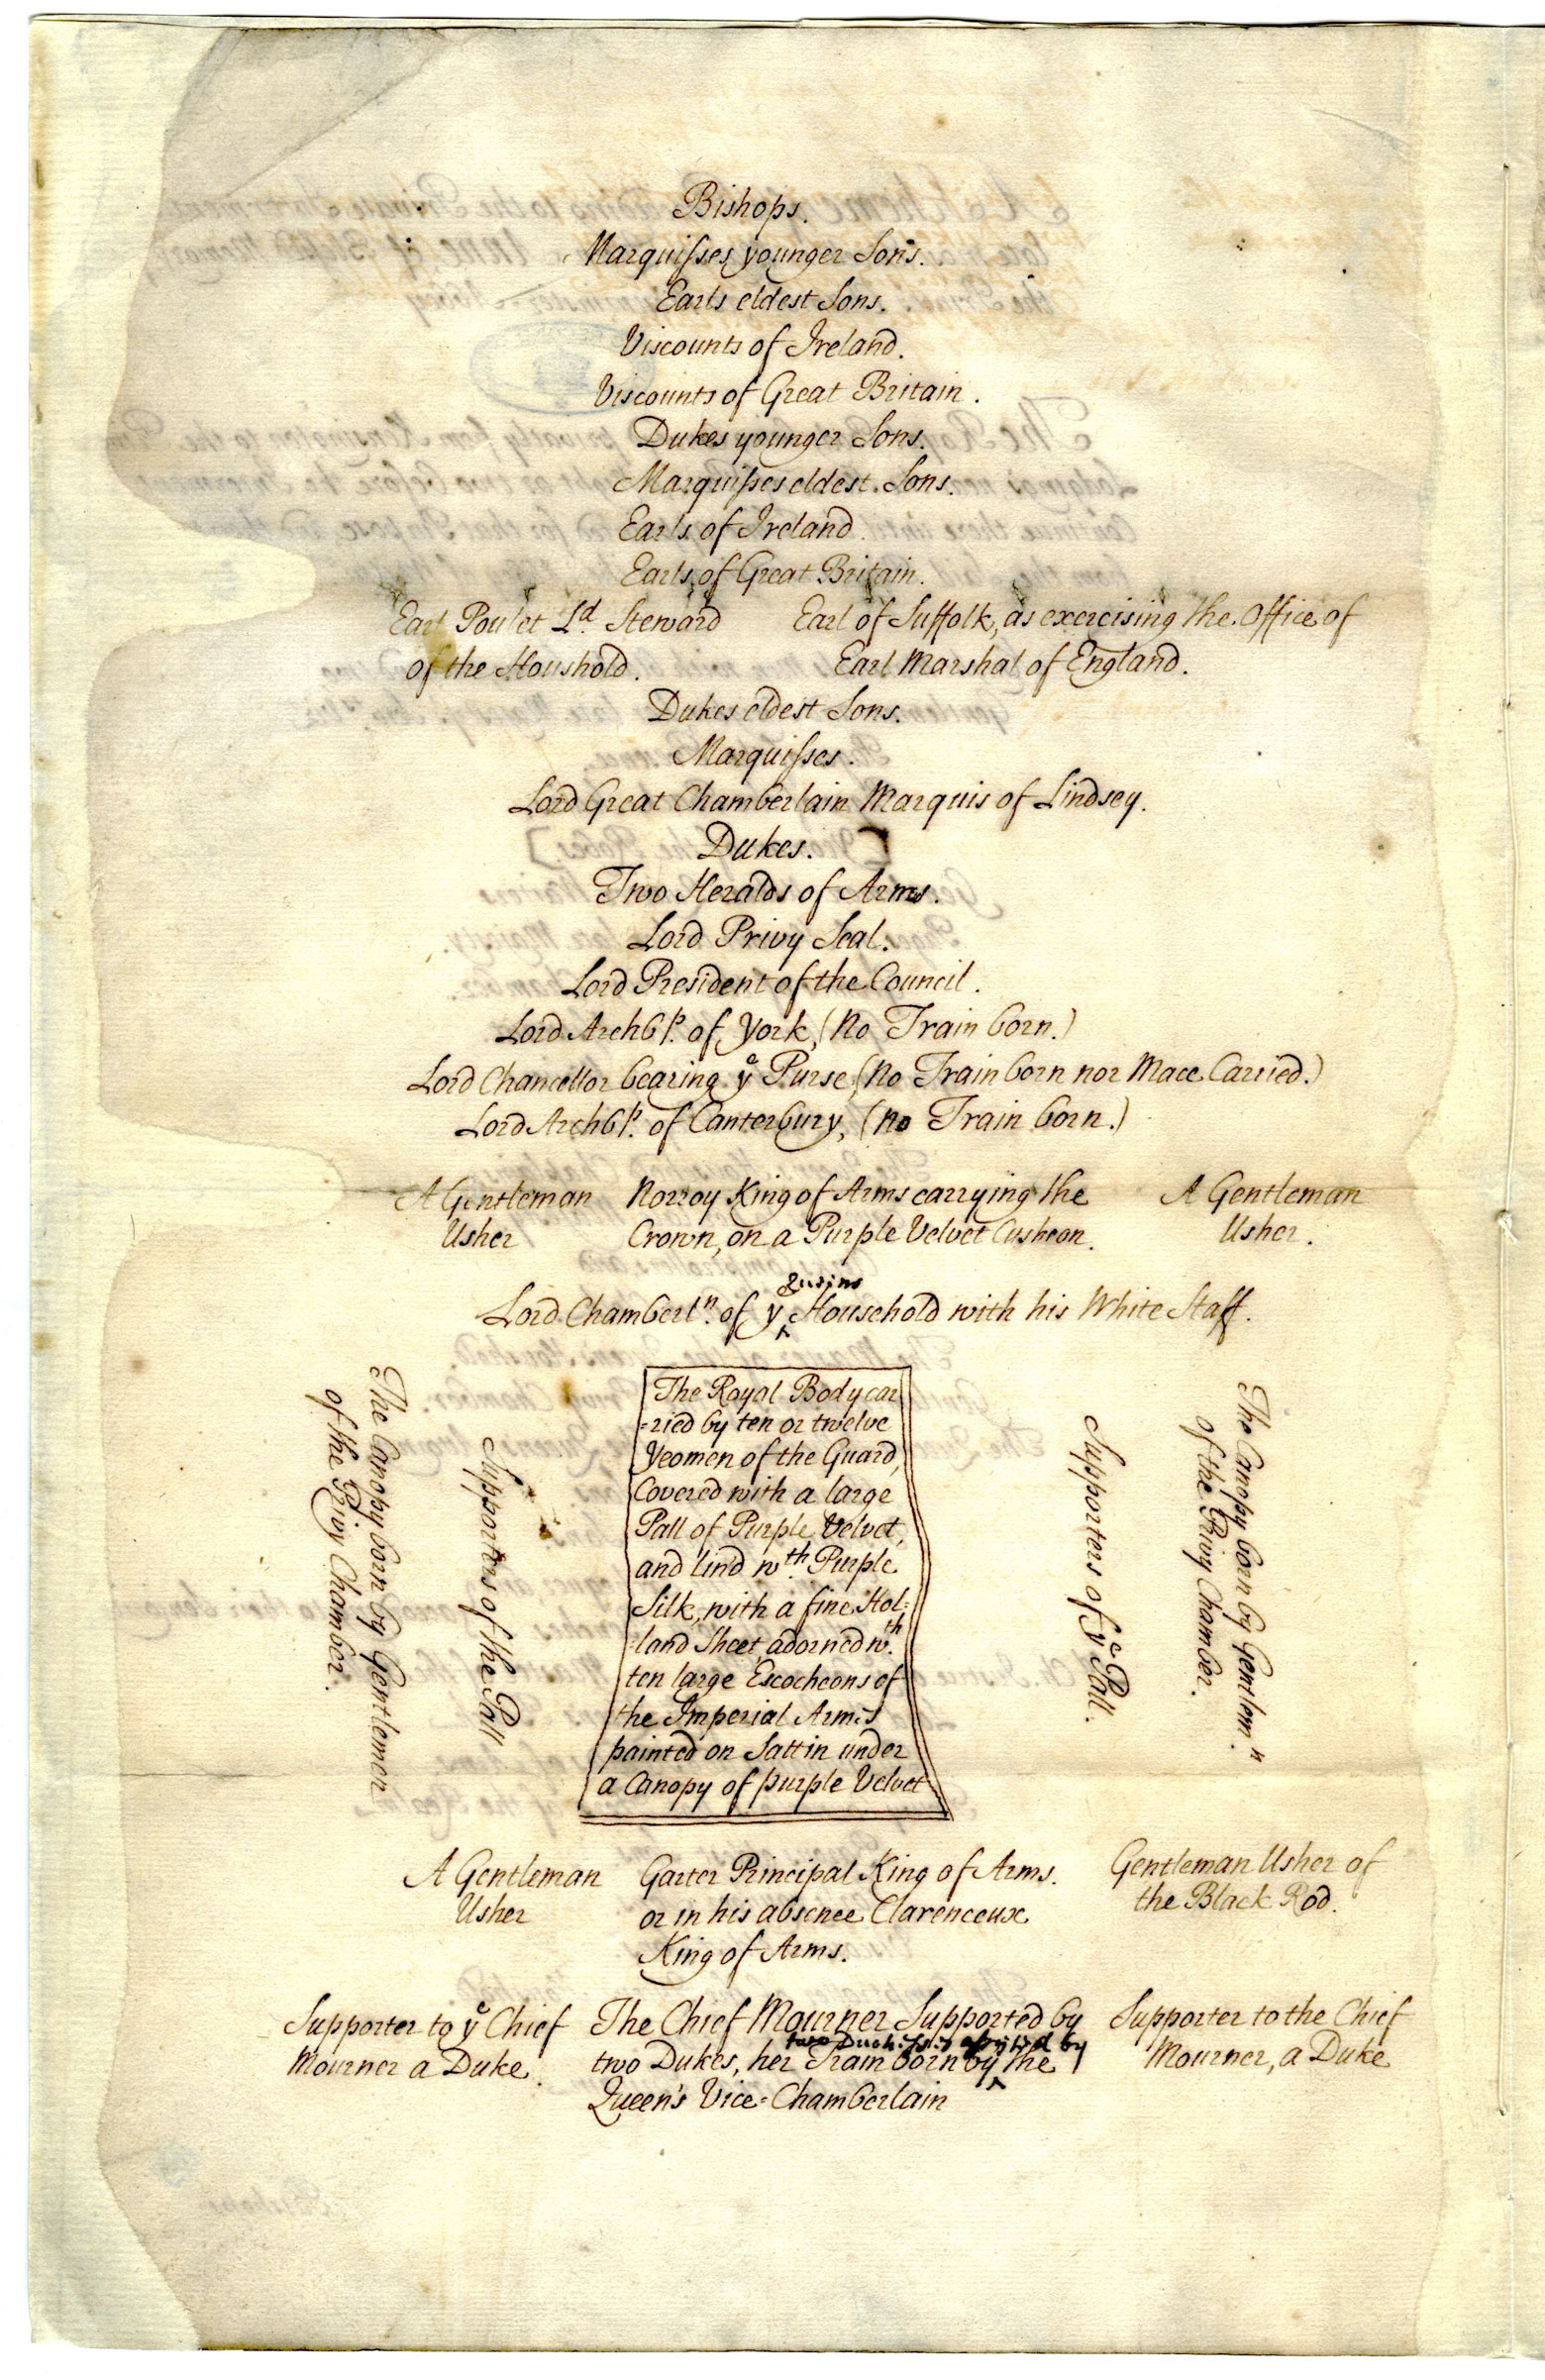 Bishops.
Marquisses younger Sons.
Earls eldest Sons.
Viscounts of Ireland.
Viscounts of Great Britain.
Dukes younger Sons.
Marquisses eldest Sons.
Earls of Ireland.
Earls of Great Britain.
Earl Poulet Ld. Steward
of the Houshold.
Earl of Suffolk, as exercising the Office of
Earl Marshal of England.
Dukes eldest Sons.
Marquisses.
Lord Great Chamberlain Marquis of Lindsey.
Dukes.
Two Heralds of Arms.
Lord Privy Seal.
Lord President of the Council.
Lord Archbp. of York, (No Train born.)
Lord Chancellor bearing ye Purse, (No Train born nor Mace Carried.)
Lord Archbp. of Canterbury, (No Train born.)
A Gentleman
Usher
Norroy King of Arms carrying the
Crown, on a Purple Velvet Cusheon.
A Gentleman
Usher.
Queens
Lord Chamberln. of y ‸ Household with his White Staff.
The Canopy born by Gentlemen
of the Privy Chamber.
Supporters of the Pall
The Royal Body car
=ried by ten or twelve
Yeomen of the Guard,
Covered with a large
Pall of Purple Velvet,
and lin'd wth. Purple
Silk, with a fine Hol:
:land Sheet, adorned wth.
ten large Escocheons of
the Imperial Arms
painted on Sattin under
a Canopy of purple Velvet
Supporters of ye Pall.
The Canopy born by Gentlemn.
of the Privy Chamber.
A Gentleman
Usher
Garter Principal King of Arms.
or in his absence Clarenceux
King of Arms.
Gentleman Usher of
the Black Rod.
Supporter to ye Chief
Mourner a Duke.
The Chief Mourner Supported by
two Duchesses assisted by
two Dukes, her Train born by ‸ the
Queen's Vice=Chamberlain
Supporter to the Chief
Mourner, a Duke